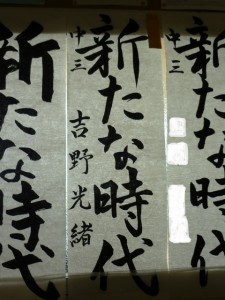 新たな時代
中三
新たな時代
中三 吉野光緒
新たな時代